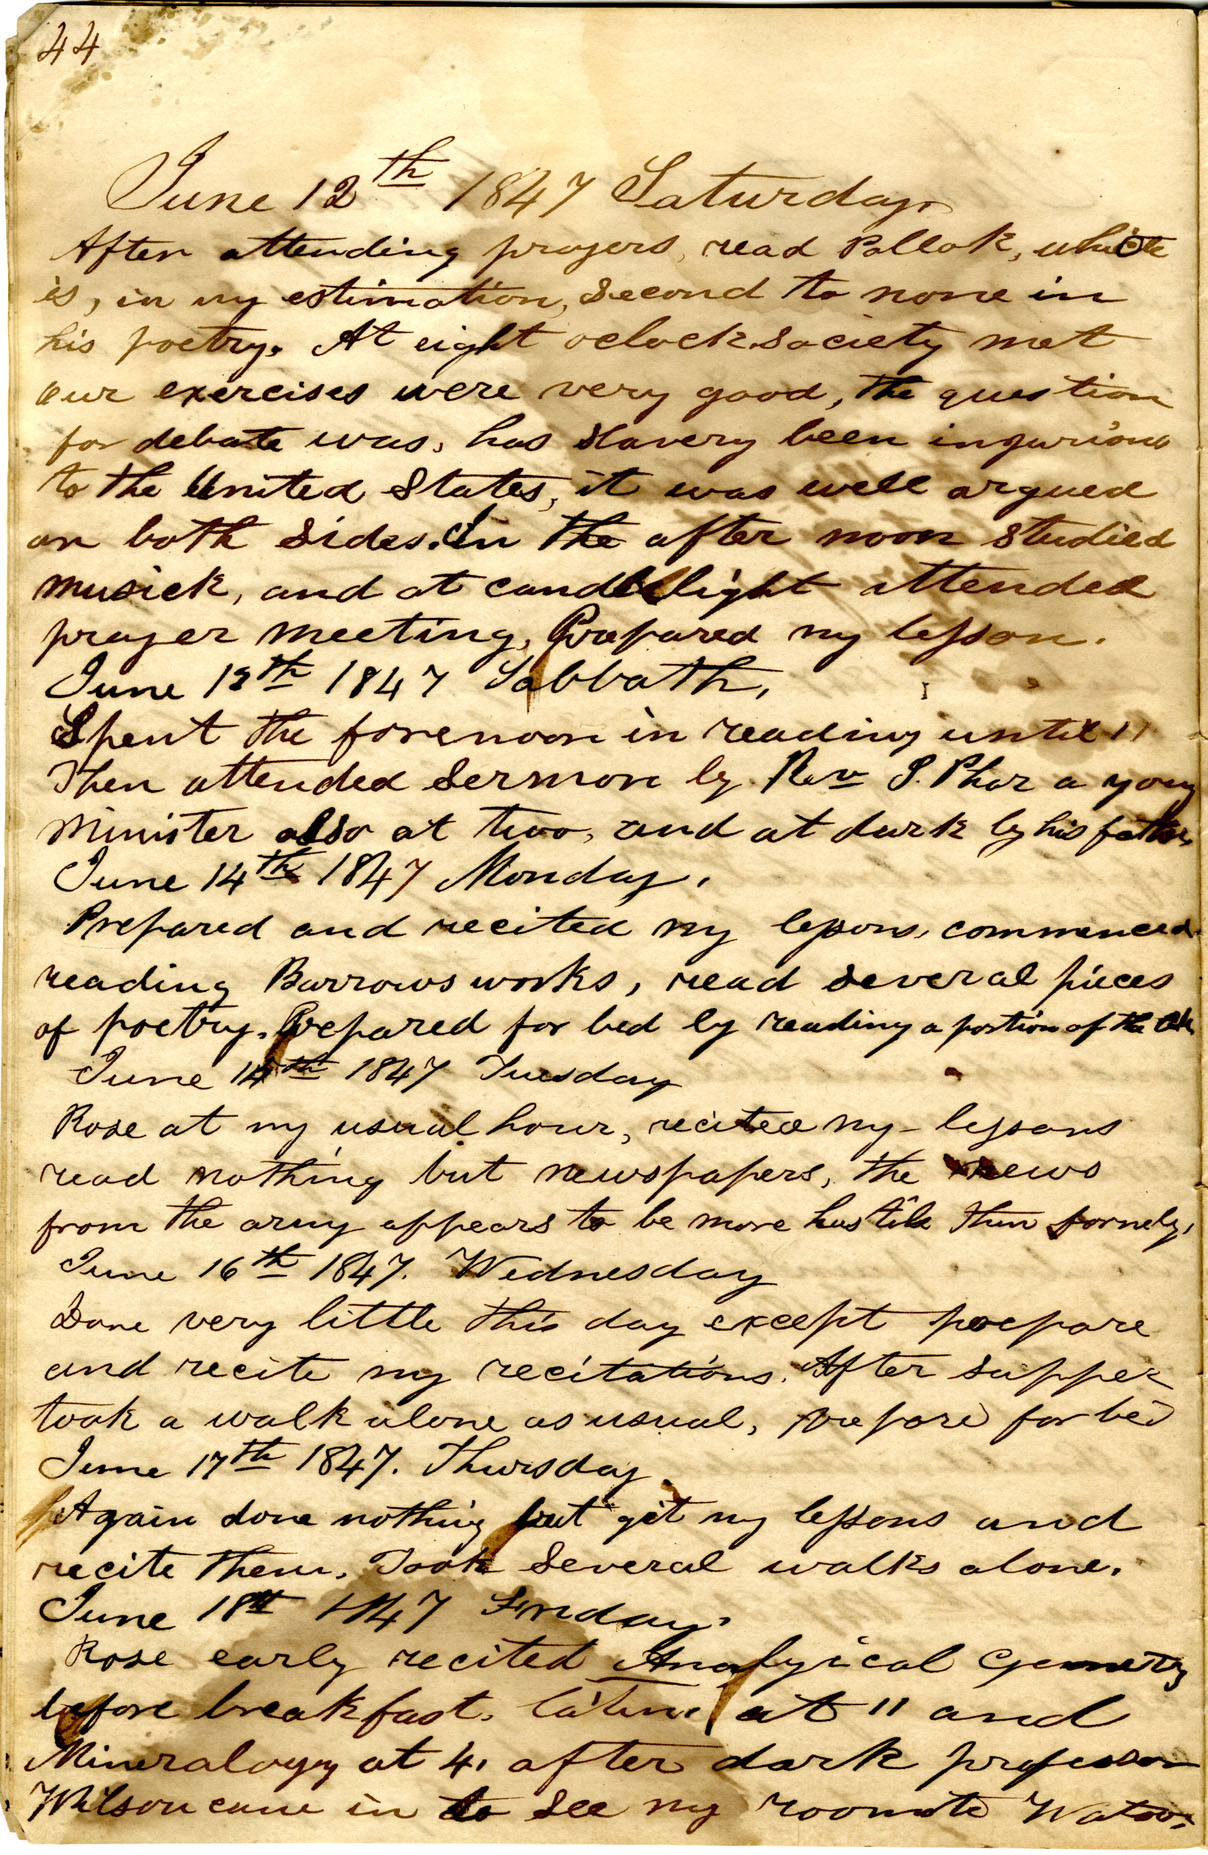 44
June 12th 1847 Saturday
After attending prayers, read Pollok, which
is, in my estimation, second to none in
his poetry. At eight oclock society met
our exercises were very good, the question
for debate was, has Slavery been injurious
to the United States, it was well argued
on both sides. In the after noon studied
musick, and at candlelight attended
prayer meeting, Prepared my lesson.
June 13th 1847 Sabbath,
Spent the forenoon in reading until 11
Then attended Sermon by Rev S. Phar a young
Minister also at two, and at dark by his father,
June 14th 1847 Monday,
Prepared and recited my lessons, commenced
reading Barrows works, read several pieces
of poetry. Prepared for bed by reading a portion of the
June 1 th 1847 Tuesday
Rose at my usual hour, recited my lessons
read nothing but newspapers, the news
from the army appears to be more hostile then
June 16th 1847. Wednesday
Done very little this day except prepare
and recite my recitations. After supper
took a walk alone as usual, prepare for bed
June 17th 1847. Thursday
Again done nothing but git my lessons and
recite them. Took several walks alone.
June 18th 1847 Friday.
Rose early recited Analyical Gemetry
before breakfast. latin at 11 and
Mineralogy at 4, after dark professor
Wilson came in to see my roomate Watson,